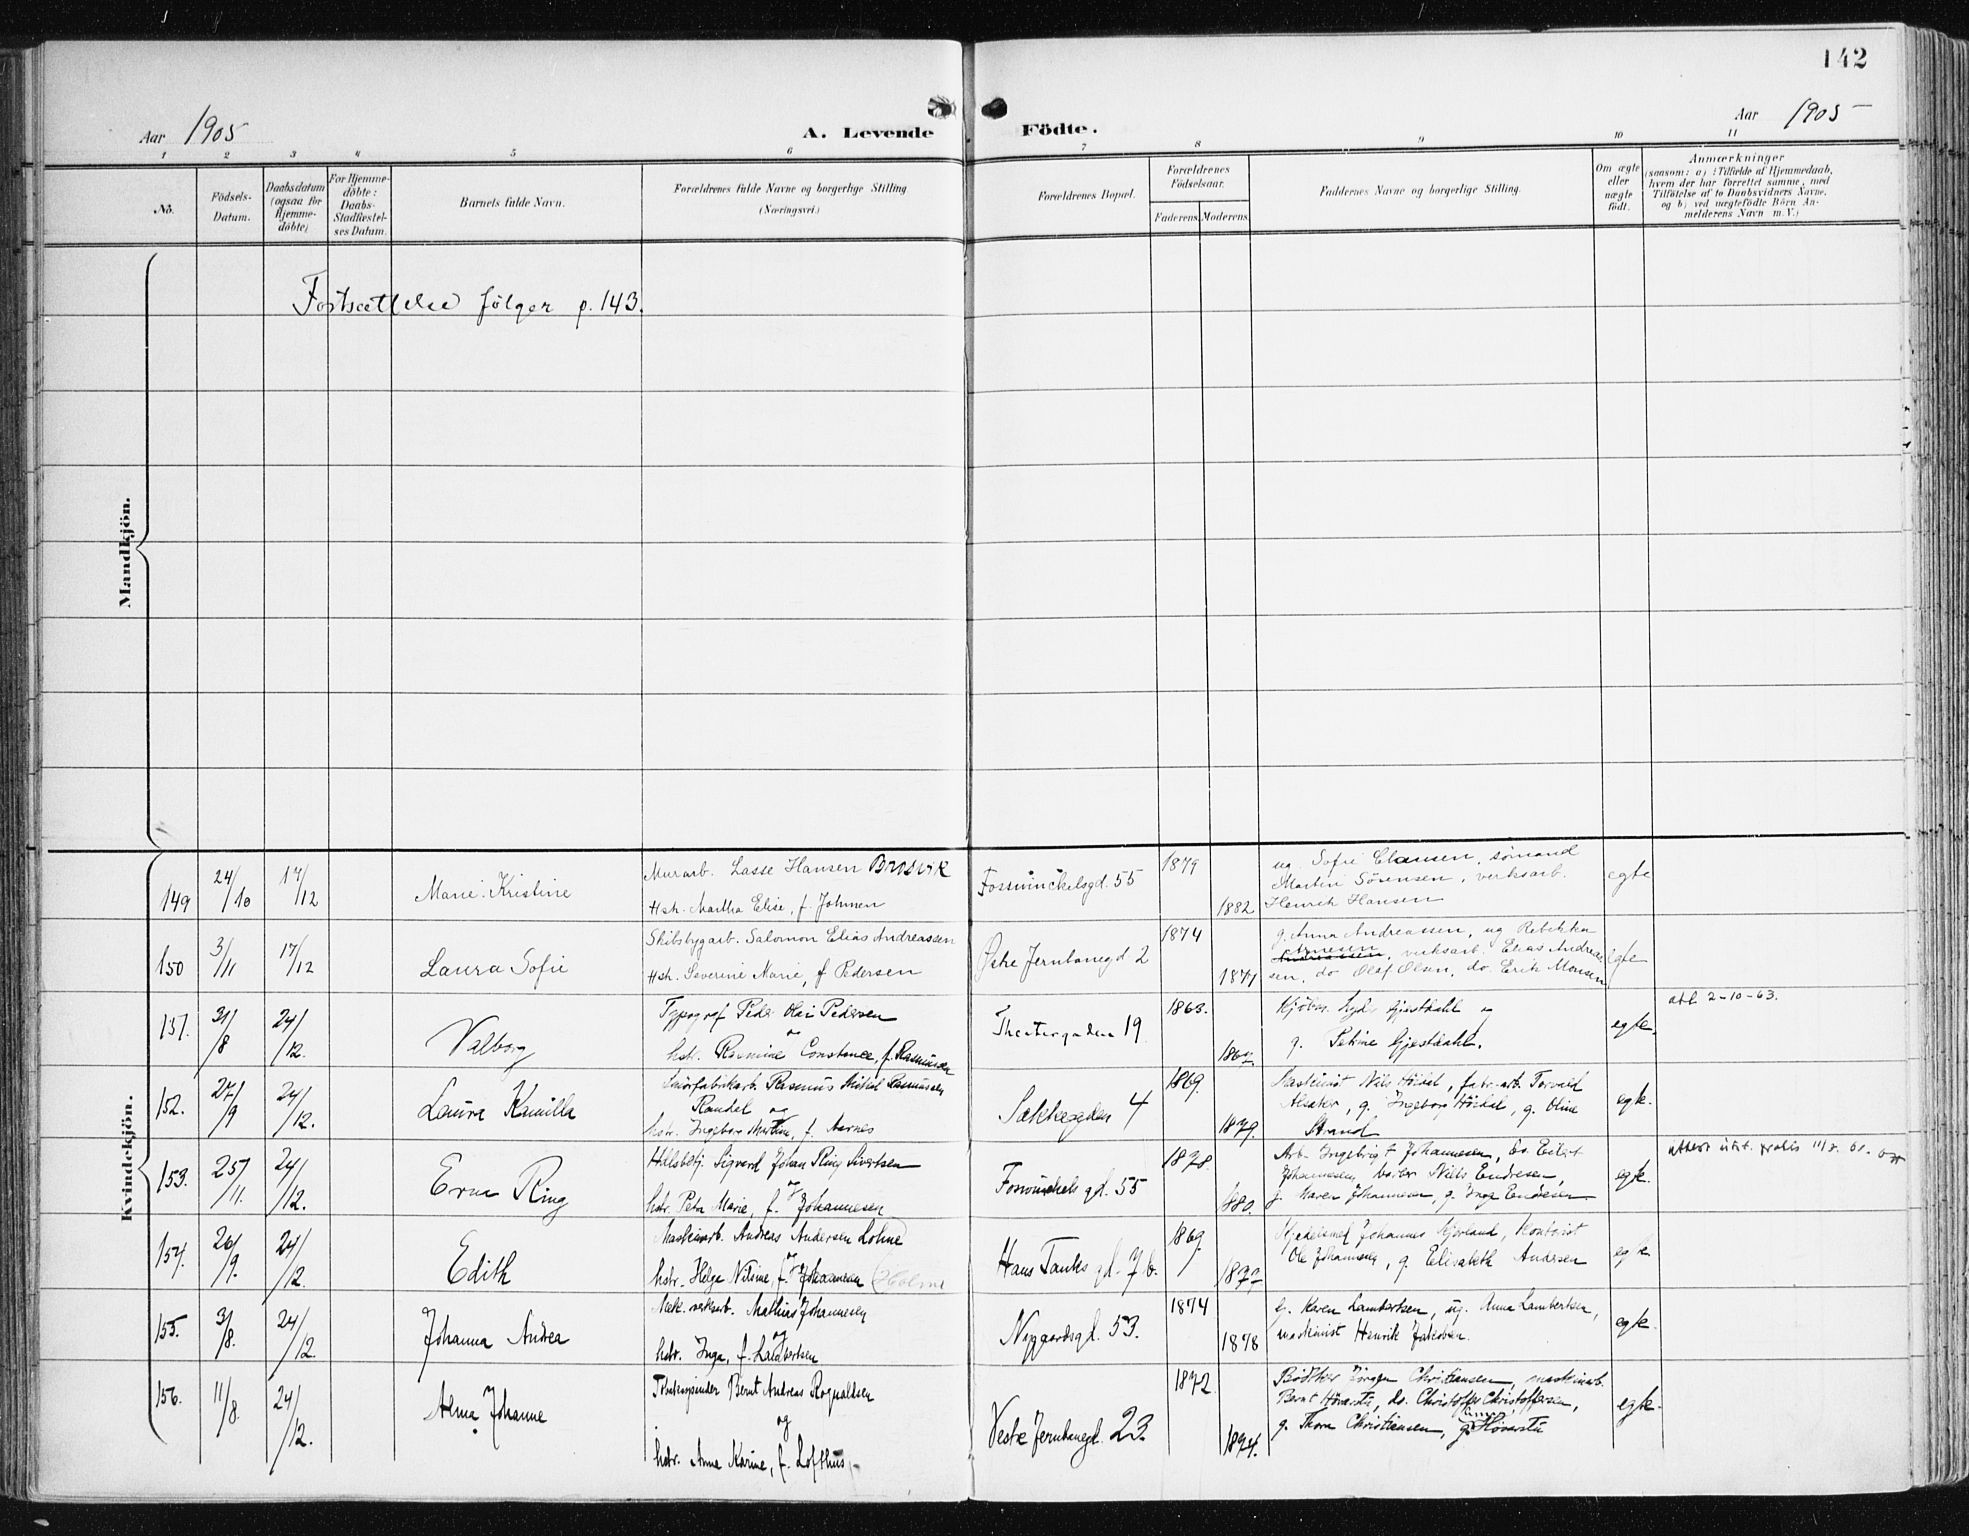 142
Aar 1905
A. Levende Födte.
Aar 1905
1 2 3 4 5 6 7 8 9 10 11
No.
Födsels-Datum.
Daabsdatum (ogsaa for Hjemme-döbte)
For Hjemme-döbte: Daabs-Stadfæstel-ses Datum.
Barnets fulde Navn.
Forældrenes fulde Navne og borgerlige Stilling (Næringsvei.)
Forældrenes Bopæl.
Forældrenes Födselsaar.
Faderens. Moderens.
Faddernes Navne og borgerlige Stilling.
Om ægte eller uægte födt.
Anmærkninger
(saasom: a) i Tilfælde af Hjemmedaab,
hvem der har forrettet samme, med
Tilföielse af to Daabsvidners Navne,
og b) ved uægtefödte Börn An-
melderens Navn m.V.)
Mandkjön.
Fortsættelse følger p. 143.
Kvindekjön.
149 24/10 17/12 Marie Kristine
Murarb. Lasse Hansen Brosvik
Hstr. Martha Elise, f. Johnsen
Fosswinckelsgd. 55
1879
1882
ug. Sofie Clausen, sømand
Martin Sörensen, verksarb.
Henrik Hansen
egte
150 3/11 17/12 Laura Sofie
Skibsbygarb. Salomon Elias Andreassen
Hstr. Severine Marie, f. Pedersen
Østre Jernbanegd 2
1874
1871
g. Anna Andreassen, ug Rebekka
Arnesen, verksarb. Elias Andreas
sen, do Olaf Olsen, do. Erik Monsen
egte
151. 31/8 24/12. Valborg
Typograf Peder Olai Pedersen
og
hstr. Rasmine Constance, f. Rasmussen
Theatergaden 19.
1863.
g. Petrine Gjestdahl.
egte.
atl 2-10-63.
152. 27/9 24/12. Laura Kamilla
Rasmus Mikal Rasmussen
Randal og
hstr. Ingeborg Martine, f. Aarnes
Sækkegaden 4
1869.
1879.
Maskinist Nils Höidal, fabr.arb. Torvald
Alsaker, g. Ingeborg Höidal, g. Oline
Strand
egte.
153. 25/11. 24/12. Erna Ring
Hdlsbetj. Sigvard Johan Ring Sivertsen
og
hstr. Petra Marie, f. Johannesen
Foswinckels gd. 55
1878.
1880.
Arb. Ingebrigt Johannesen, do. Eilert
Johannesen, Niels Endresen,
g. Karen Johannesen, g. Inga Endresen
egte.
154. 26/9. 24/12. Edith
Maskinarb. Andreas Andersen Lohne
og
hstr. Helga Nilsine, f. Johannesen (Holme
Hans Tanks gd. 7b.
1869.
1877
Kjedelsmed Johannes Kjerland, Kontorist
Ole Johannesen, g. Elisabeth Andersen
egte
155. 3/8. 24/12. Johanna Andrea
Mek. verksarb. Mathias Johannesen
og
hstr. Inga, f. Lambertsen
Nygaardsgd. 53.
1874
1878
g. Karen Lambertsen, ug. Anna Lambertsen,
maskinist Henrik Jakobsen.
egte.
156. 11/8. 24/12. Alma Johanne
Tobakspinder Bernt Andreas Rognaldsen
og
hstr. Anna Karine, f. Lofthus
Vestre Jernbanegd. 23.
1872.
1874.
Bødker Jörgen Christiansen, maskinarb.
Bernt Hövarstu, do. Christoffer Christoffersen,
g. Thora Christiansen, g. Hövarstu
egte.